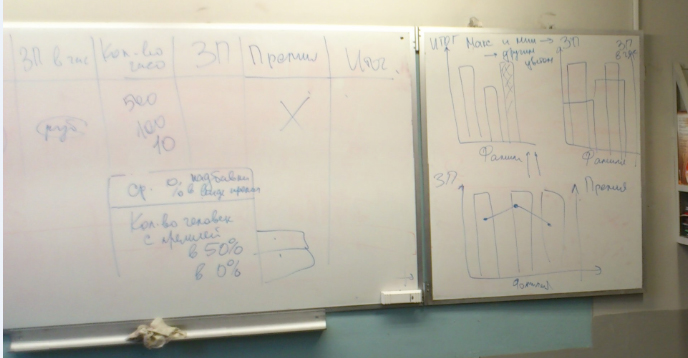 ЗП в час
Кол-во
часо
ЗП
Премия
Итог.
руб
500
100
10
Ср. % надбавки
в виде премии
Кол-во человек
с премией
в 50%
в 0%
ИТОГ
Макс и мин →
→ другим
цветом
Фамилия
ЗП
ЗП
в час
Фамилия
ЗП
Премия
Фамилия